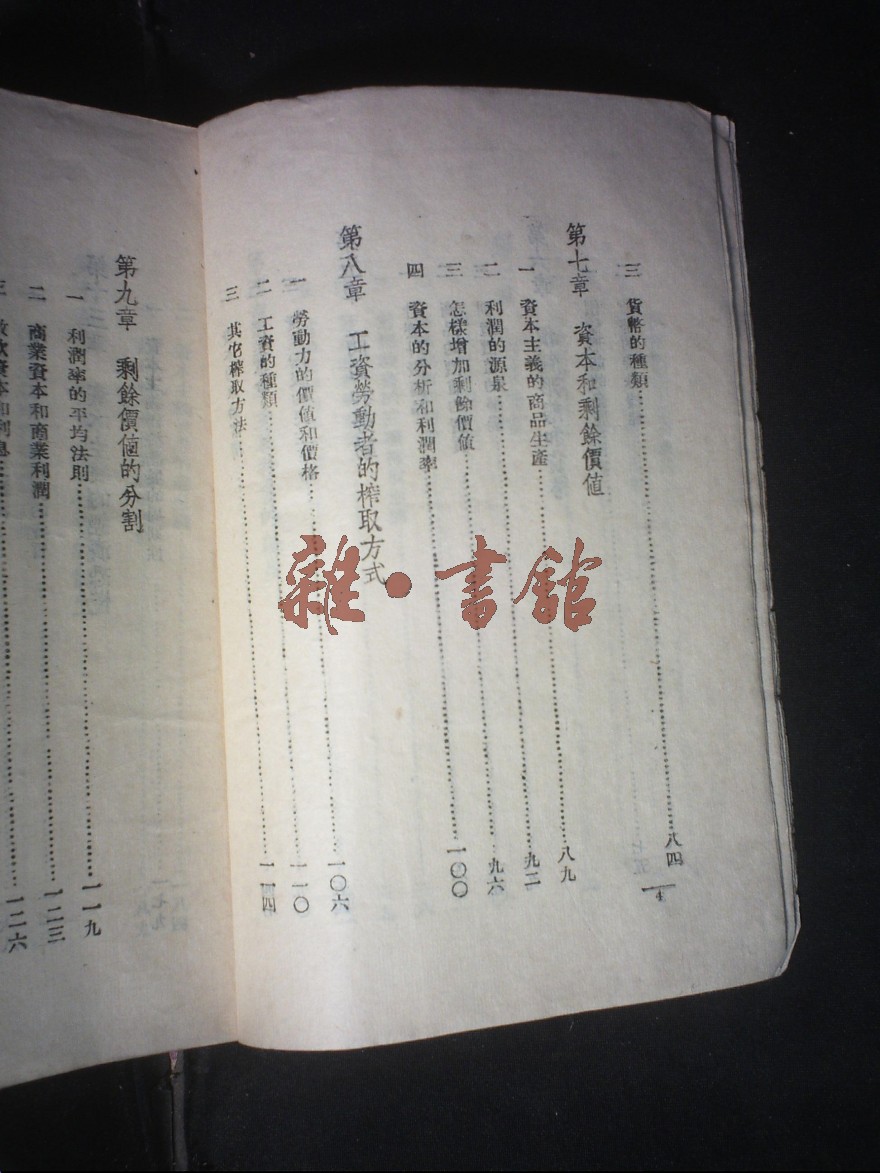 三 貨幣的種類……八四
第七章 資本和剩餘價值
一 資本主義的商品生產……八九
二 利潤的源泉……九二
三 怎樣增加剩餘價值……九六
四 資本的分析和利潤率……一〇〇
第八章 工資勞動者的榨取方式
一 勞動力的價值和價格……一〇六
二 工資的種類……一一〇
三 其它榨取方法……一一四
第九章 剩餘價值的分割
一 利潤率的平均法則……一一九
二 商業資本和商業利潤……一二三
三 資本和利息……一二六
4
雜·書館